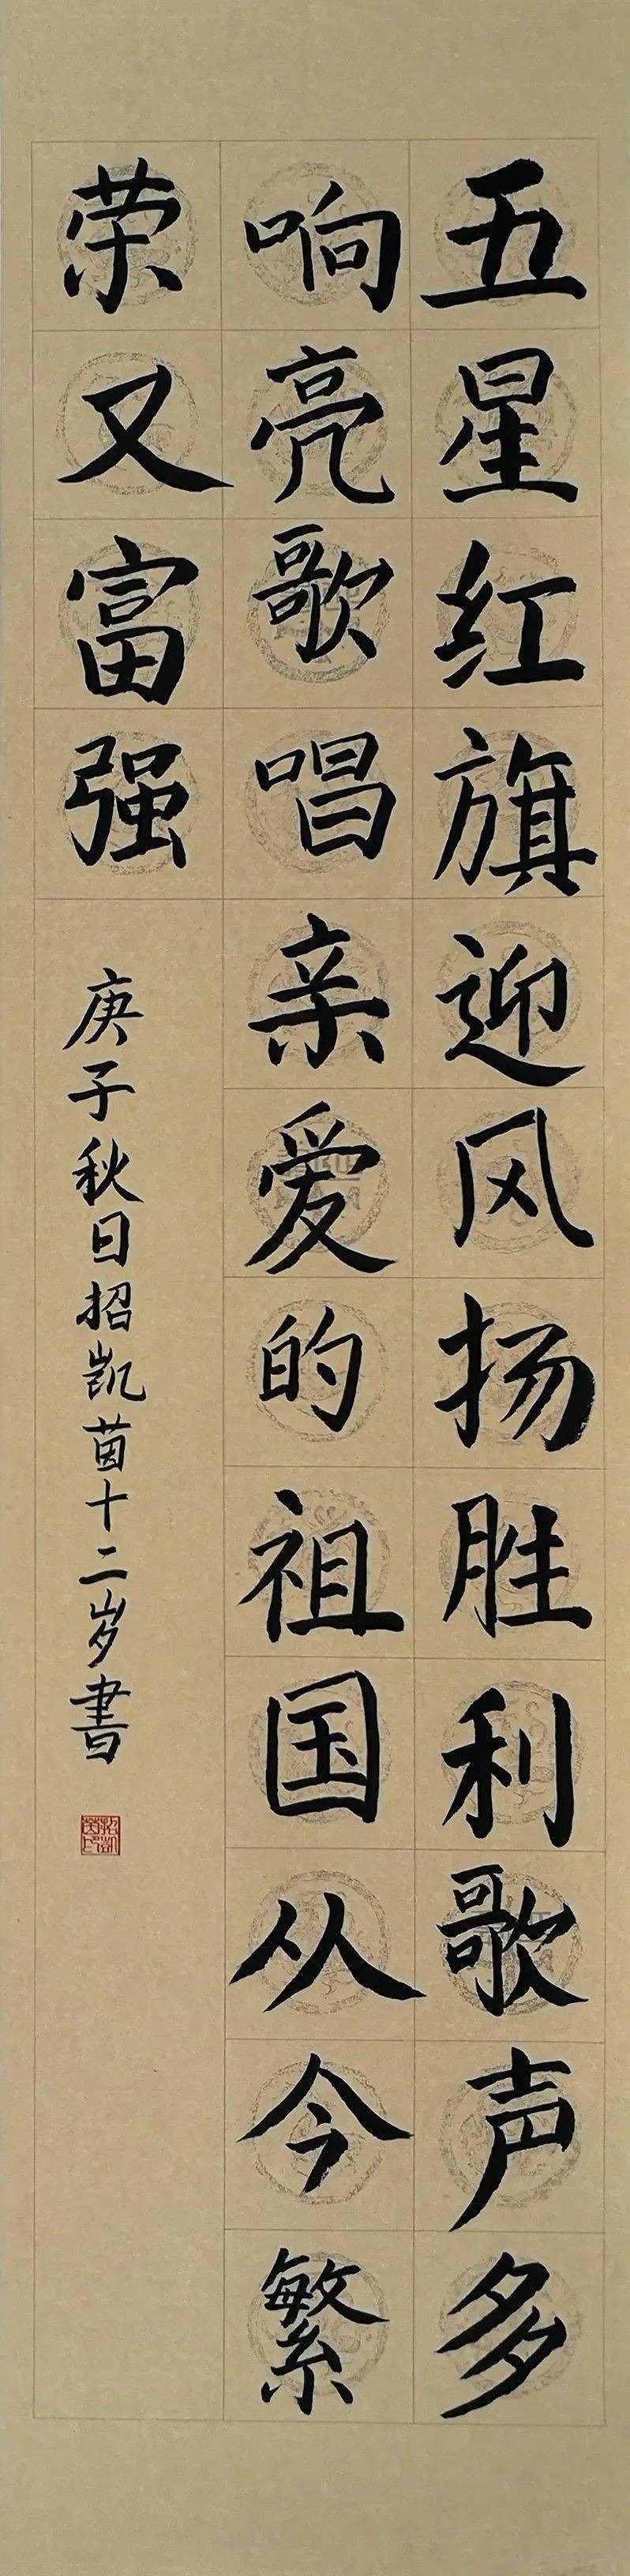 五星红旗迎风扬胜利歌声多
响亮歌唱亲爱的祖国从今繁
荣又富强
庚子秋日招凯茵十二岁書
招凯茵印